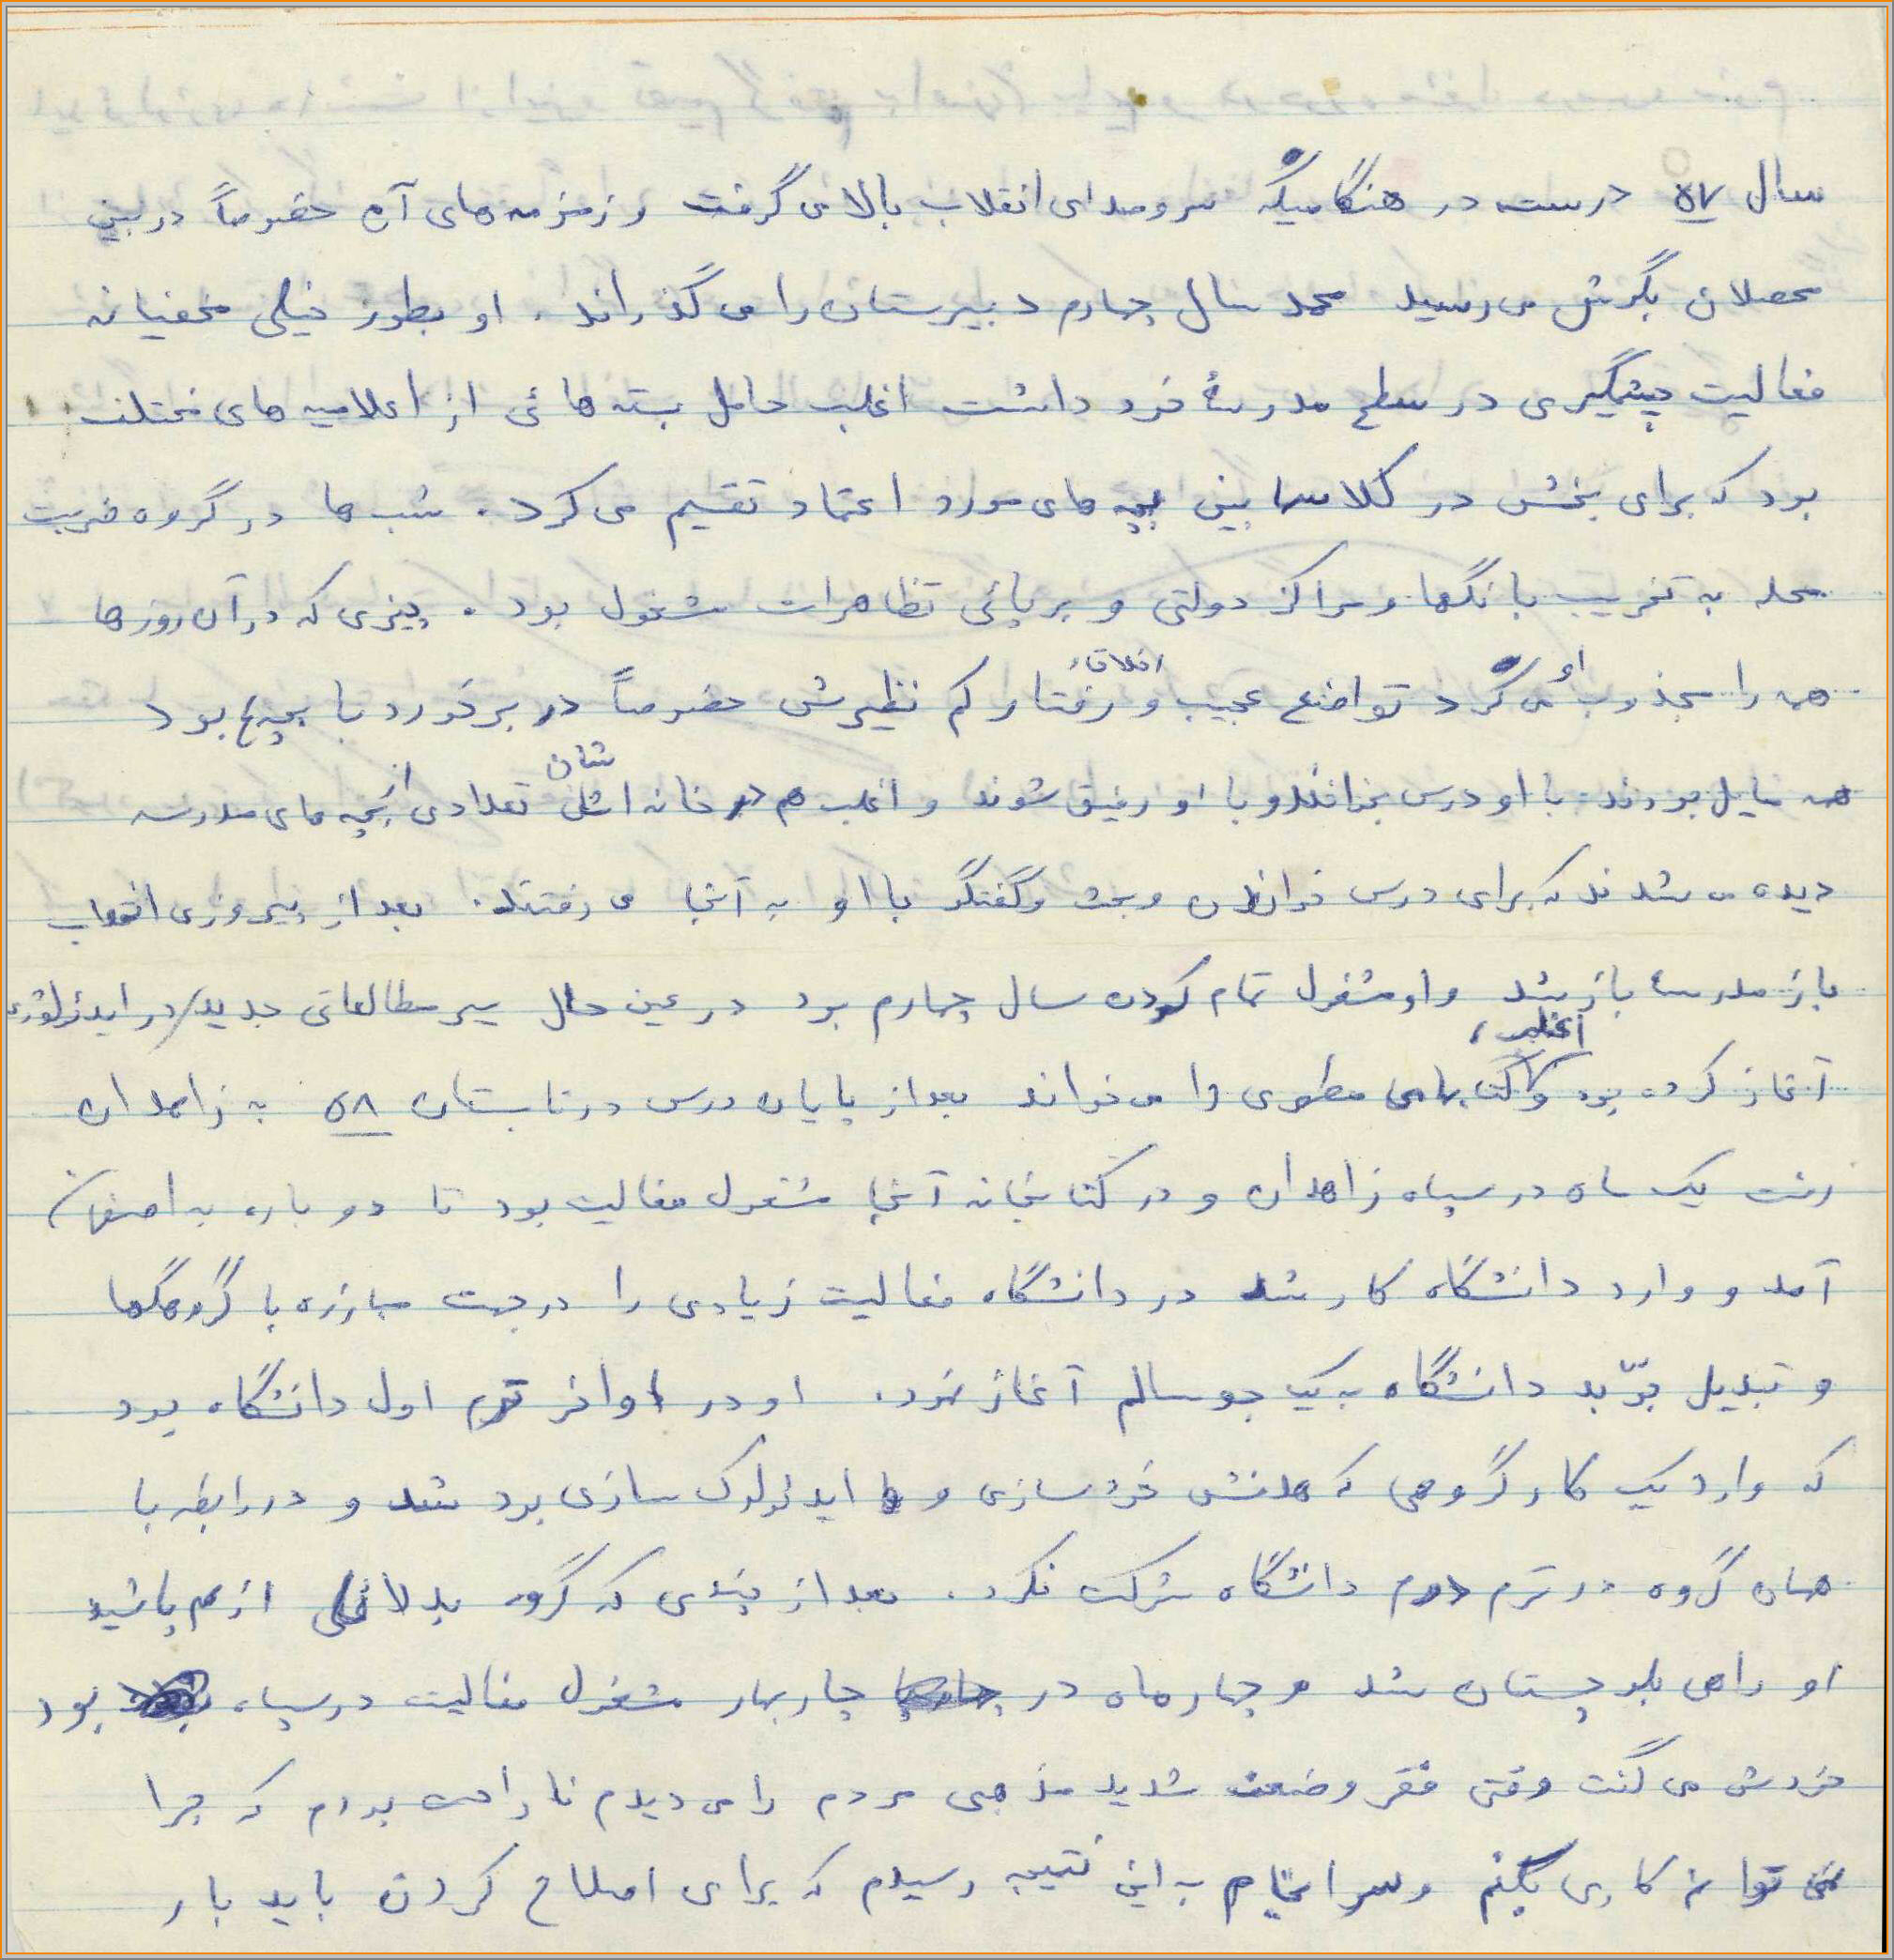 سال ۵۷ درست در هنگامیکه سروصدای انقلاب بالا می گرفت و زمزمه های آن خصوصاً در بین
محصلان بگوش می رسید محمد سال چهارم دبیرستان را می گذراند. او بطور خیلی مخفیانه
فعالیت چشمگیری در سطح مدرسهٔ خود داشت اغلب حامل بسته هائی از اعلامیه های مختلف
بود که برای پخش در کلاسها بین بچه های مورد اعتماد تقسیم می کرد. شب ها در گروه ضربت
محله به تخریب بانگها و مراکز دولتی و برپائی تظاهرات مشغول بود. چیزی که در آن روزها
همه را مجذوب او می کرد تواضع عجیب و اخلاق، رفتار کم نظیرش خصوصاً در برخورد با بچه ها بود
همه مایل بودند با او درس بخوانند و با او رفیق شوند و اغلب هم در خانه اشان تعدادی از بچه های مدرسه
دیده می شدند که برای درس خواندن و بحث و گفتگو با او به آنجا می رفتند. بعد از پیروزی انقلاب
باز مدرسه باز شد و او مشغول تمام کردن سال چهارم بود در عین حال سیر مطالعاتی جدید/در ایدئولوژی
آغاز کرده بود و اغلب، کتابهای مطهری را می خواند بعد از پایان درس در تابستان ۵۸ به زاهدان
رفت یک ماه در سپاه زاهدان و در کتابخانه آنجا مشغول فعالیت بود تا دوباره به اصفهان
آمد و وارد دانشگاه کار شد در دانشگاه فعالیت زیادی را در جهت مبارزه با گروهگها
و تبدیل جوّ بد دانشگاه به یک جو سالم آغاز نمود. او در اواخر ترم اول دانشگاه بود
که وارد یک کار گروهی که هدفش خودسازی و ایدئولوگ سازی بود شد و در رابطه با
همان گروه در ترم دوم دانشگاه شرکت نکرد. بعد از چندی که گروه بدلائلی از هم پاشید
او راهی بلوچستان شد و چهار ماه در چاربهار مشغول فعالیت در سپاه بود
خودش می گفت وقتی فقر و ضعف شدید مذهبی مردم را می دیدم ناراحت بودم که چرا
نمی توانم کاری بکنم و سرانجام به این نتیجه رسیدم که برای اصلاح کردن باید بار